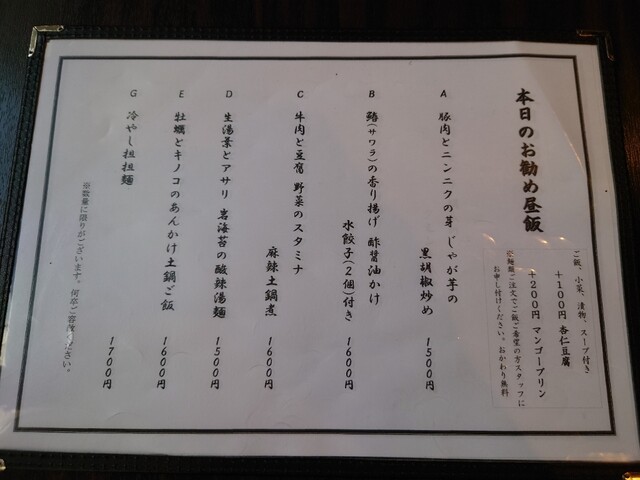 本日のお勧め昼飯
ご飯、小菜、漬物、スープ付き
+100円 杏仁豆腐
+200円 マンゴープリン
※麺類ご注文でご飯ご希望の方スタッフに
お申し付けください。おかわり無料
A 豚肉とニンニクの芽 じゃが芋の
黒胡椒炒め 1500円
B 鰆(サワラ)の香り揚げ 酢醤油かけ
水餃子(2個)付き 1600円
C 牛肉と豆腐 野菜のスタミナ
麻辣土鍋煮 1600円
D 生湯葉とアサリ 岩海苔の酸辣湯麺 1500円
E 牡蠣とキノコのあんかけ土鍋ご飯 1600円
G 冷やし担担麺 1700円
※数量に限りがございます。何卒ご容赦ください。